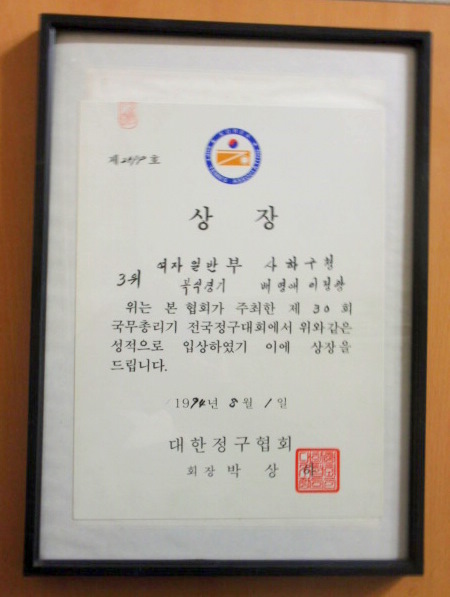 상 장
여자일반부 사하구청
3위 복식경기
위는 본 협회가 주최한 제 30 회
국무총리기 전국정구대회에서 위와같은
성적으로 입상하였기 이에 상장을
드립니다.
1994년 8월 1일
대한정구협회
회장 박 상 하